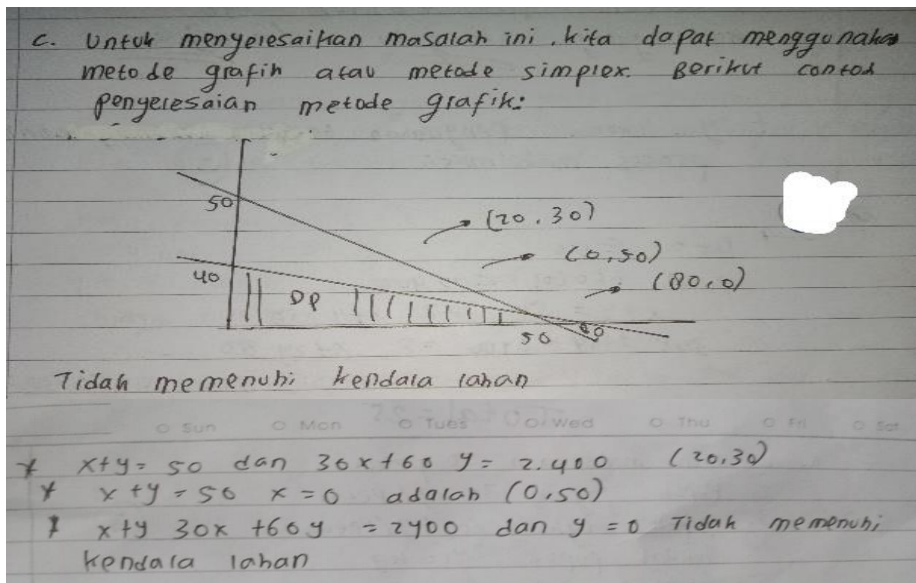 c. Untuk menyelesaikan masalah ini, kita dapat menggunakan
metode grafik atau metode simplex. Berikut contoh
penyelesaian metode grafik:
50
(20,30)
(0,50)
(80,0)
40
DP
50
80
Tidak memenuhi kendala lahan
Sun Mon Tues Wed Thu Fri Sat
* x+y = 50 dan 30x+60y = 2.400 (20,30)
* x+y = 50 x = 0 adalah (0,50)
* x+y 30x+60y = 2400 dan y = 0 Tidak memenuhi
kendala lahan